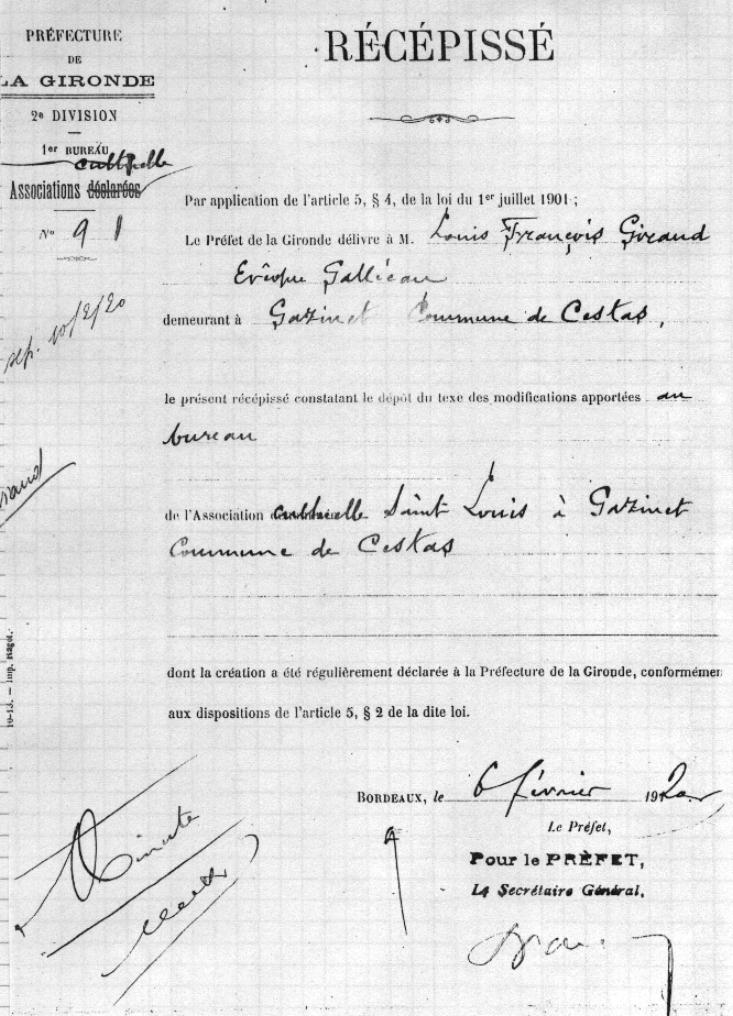 PRÉFECTURE
DE
LA GIRONDE
2e DIVISION
1er BUREAU
cultuelle
Associations déclarées
N° 91
sep. 10/2/20
RÉCÉPISSÉ
Par application de l'article 5, § 4, de la loi du 1er juillet 1901 ;
Le Préfet de la Gironde délivre à M. Louis François Giraud
Evêque Gallican
demeurant à Gazinet Commune de Cestas,
le présent récépissé constatant le dépôt du texe des modifications apportées au
bureau
de l'Association cultuelle Saint Louis à Gazinet
Commune de Cestas
dont la création a été régulièrement déclarée à la Préfecture de la Gironde, conformémen
aux dispositions de l'article 5, § 2 de la dite loi.
10-13. — Imp. Bagot.
BORDEAUX, le 6 février 1920
Le Préfet,
Pour le PRÉFET,
Le Secrétaire Général,
Minute